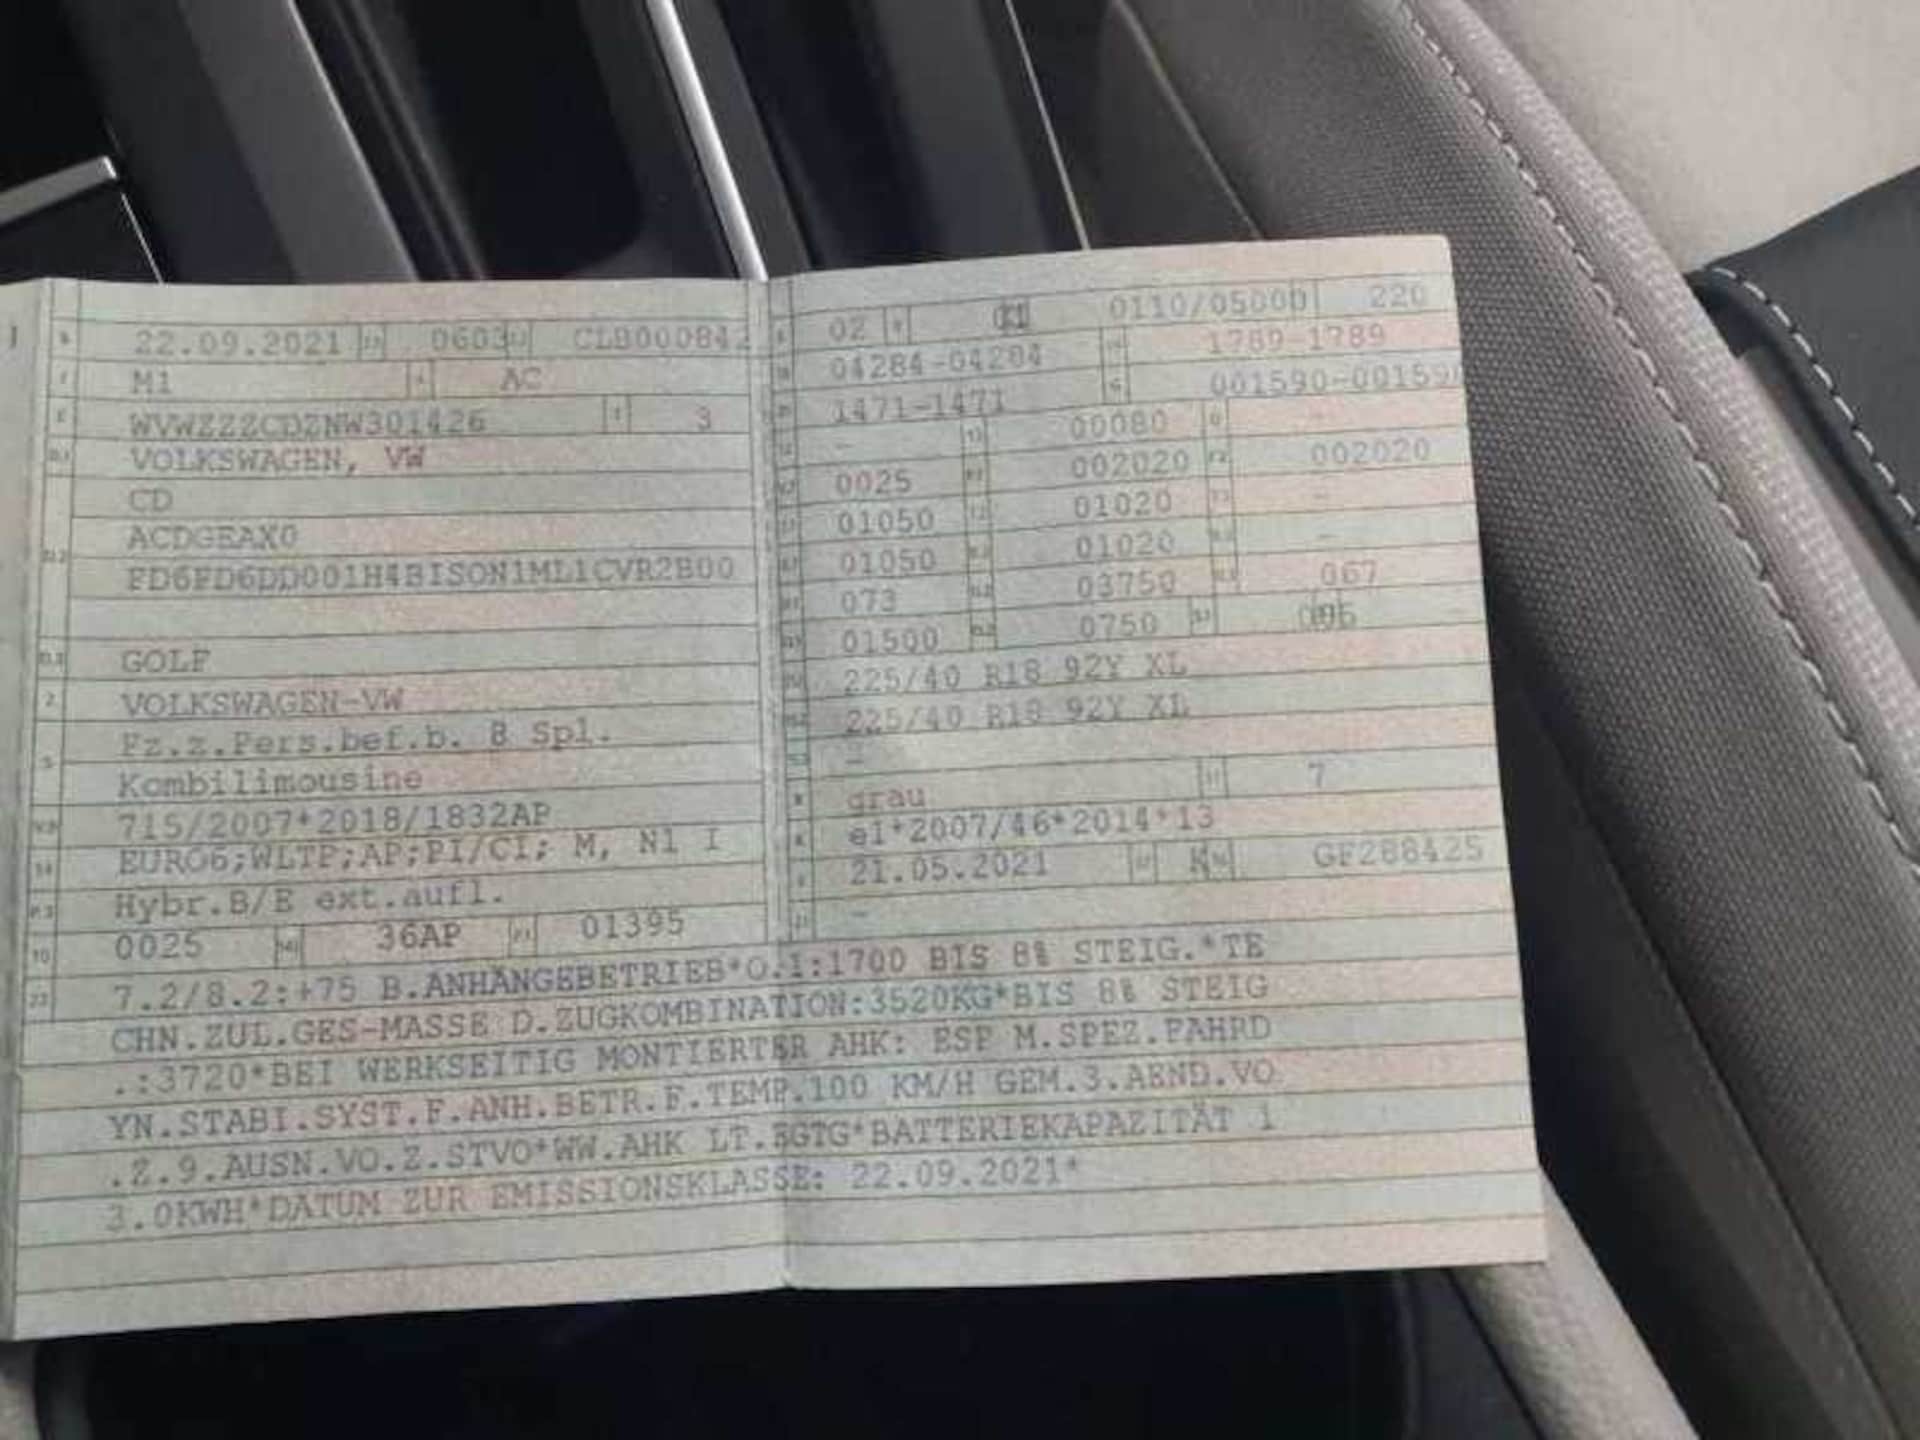 22.09.2021 0603 CLB000842
M1 AC
WVWZZZCDZNW301426 3
VOLKSWAGEN, VW
CD
ACDGEAX0
FD6FD6DD001H4BISON1ML1CVR2B00
GOLF
VOLKSWAGEN-VW
Fz.z.Pers.bef.b. 8 Spl.
Kombilimousine
715/2007*2018/1832AP
EURO6;WLTP;AP;PI/CI; M, N1 I
Hybr.B/E ext.aufl.
0025 36AP 01395
02 0110/05000 220
04284-04284 1789-1789
1471-1471 001590-00159
- 00080 -
0025 002020 002020
01050 01020 -
01050 01020 -
073 03750 067
01500 0750
225/40 R18 92Y XL
225/40 R18 92Y XL
-
grau 7
e1*2007/46*2014*13
21.05.2021 K GF288425
-
7.2/8.2:+75 B.ANHÄNGEBETRIEB*O.1:1700 BIS 8% STEIG.*TE
CHN.ZUL.GES-MASSE D.ZUGKOMBINATION:3520KG*BIS 8% STEIG
.:3720*BEI WERKSEITIG MONTIERTER AHK: ESP M.SPEZ.FAHRD
YN.STABI.SYST.F.ANH.BETR.F.TEMP.100 KM/H GEM.3.AEND.VO
.Z.9.AUSN.VO.Z.STVO*WW.AHK LT.EGTG*BATTERIEKAPAZITÄT 1
3.0KWH*DATUM ZUR EMISSIONSKLASSE: 22.09.2021*